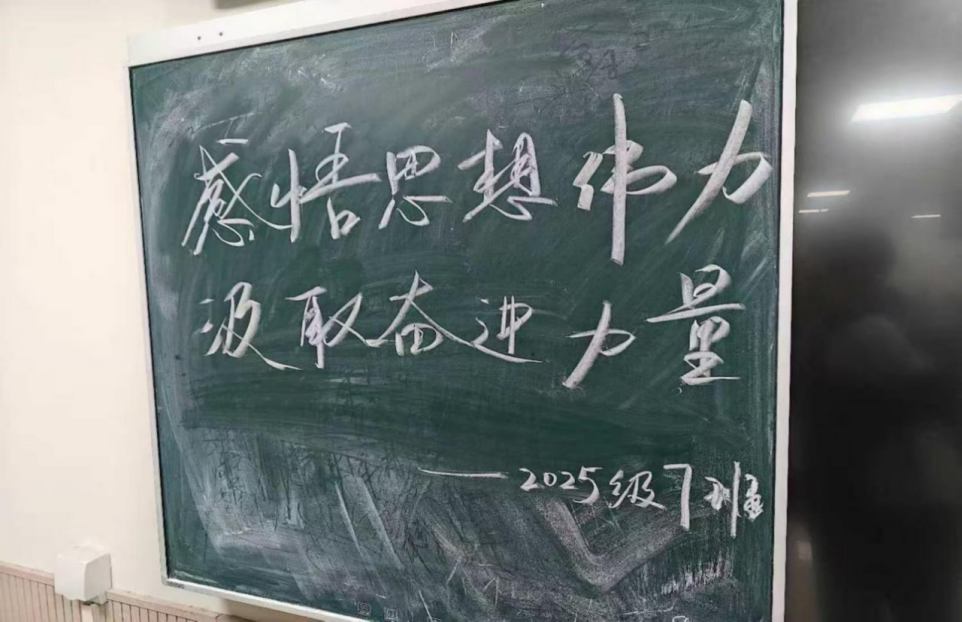 感悟思想伟力
汲取奋进力量
——2025级7班